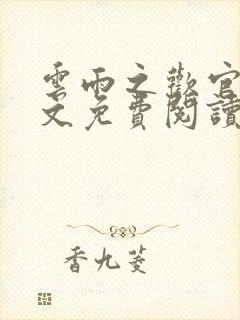 雲雨之歡官
文免費閱讀
香九菱